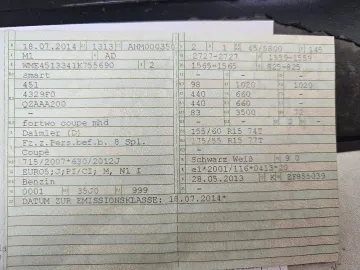 18.07.2014 1313 ANM000350
M1 AD
WME4513341K755690 2
smart
451
4329F0
QZAAA200
-
fortwo coupe mhd
Daimler (D)
Fz.z.Pers.bef.b. 8 Spl.
Coupé
715/2007*630/2012J
EURO5;J;PI/CI; M, N1 I
Benzin
0001 35J0 999
DATUM ZUR EMISSIONSKLASSE: 18.07.2014*
2 1 45/5800 145
2727-2727 1559-1559
1565-1565 825-825
- - -
98 1020 - 1020
440 660 -
440 660 -
83 3500 72
- -
155/60 R15 74T
175/55 R15 77T
-
Schwarz Weiß 9 0
e1*2001/116*0413*20
28.05.2013 K EF855039
- -